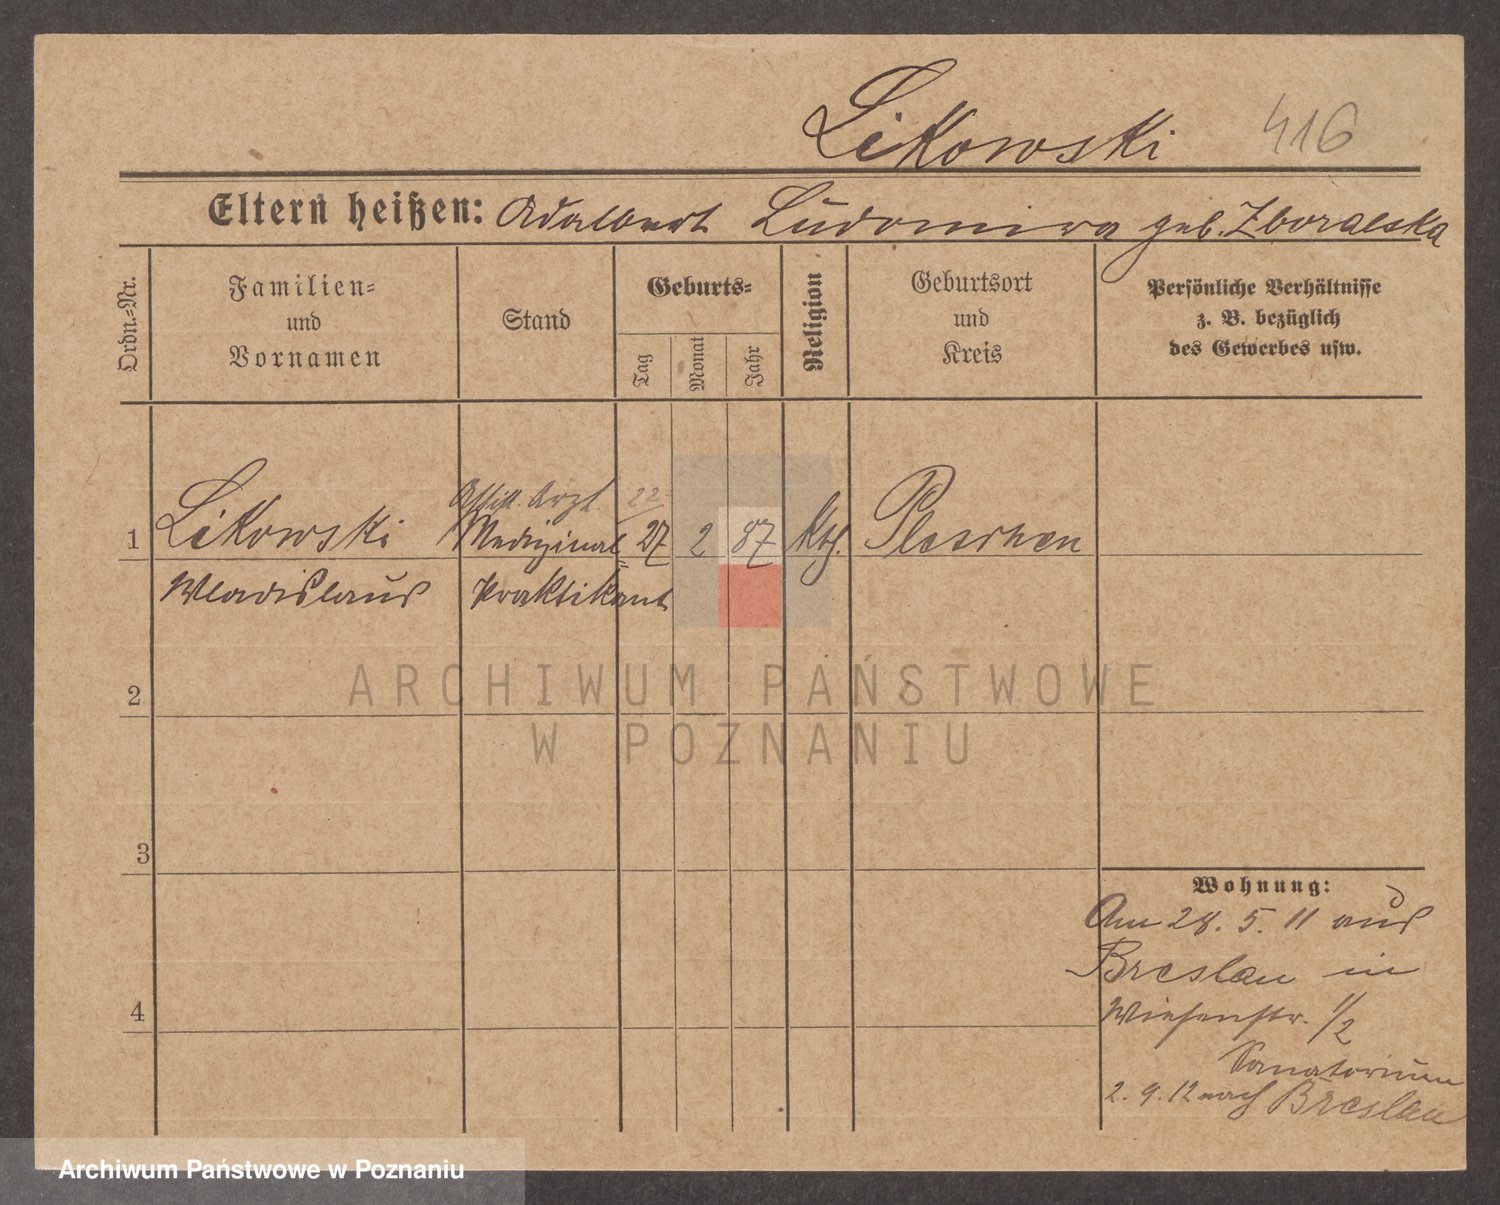 Likowski 416
Eltern heißen: Adalbert Ludomira geb. Zboralska
Ordn.-Nr.
Familien-
und
Vornamen
Stand
Geburts-
Tag
Monat
Jahr
Religion
Geburtsort
und
Kreis
Persönliche Verhältnisse
z. B. bezüglich
des Gewerbes usw.
Assist. Arzt. 22
1 Likowski Medizinal- 27 2 87 kth. Pleschen
Wladislaus Praktikant
ARCHIWUM PAŃSTWOWE
W POZNANIU
2
3
4
Wohnung:
Am 28. 5. 11 aus
Breslau in
Wiesenstr. 1/2
Sanatorium
2. 9. 12 nach Breslau
Archiwum Państwowe w Poznaniu